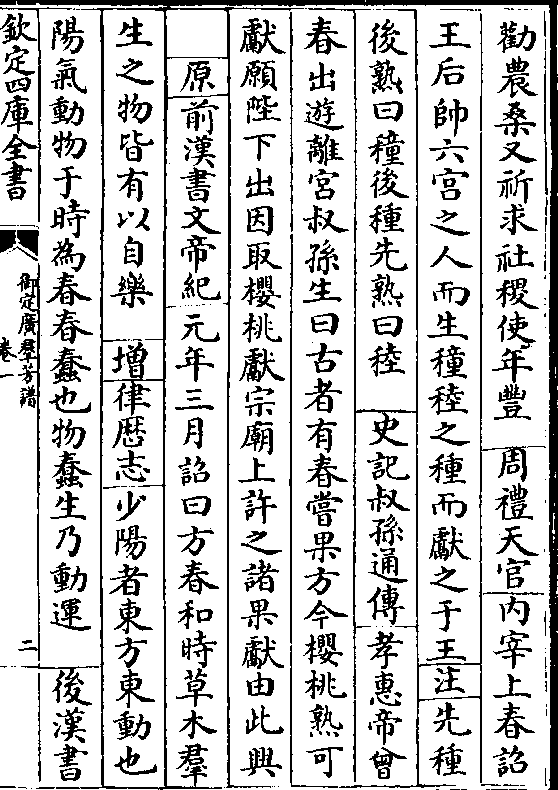 勸農桑又祈求社稷使年豐 周禮天官 内宰上春詔
王后帥六宫之人而生穜稑之種而獻之于王 注 先種
後熟曰穜後種先熟曰稑 史記叔孫通傳 孝惠帝曾
春出遊離宫叔孫生曰古者有春嘗果方今櫻桃熟可
獻願陛下出因取櫻桃獻宗廟上許之諸果獻由此興
原 前漢書文帝紀 元年三月詔曰方春和時草木羣
生之物皆有以自樂 增 律歴志 少陽者東方東動也
陽氣動物于時為春春蠢也物蠢生乃動運 後漢書
欽定四庫全書
御定廣羣芳譜
卷一
二